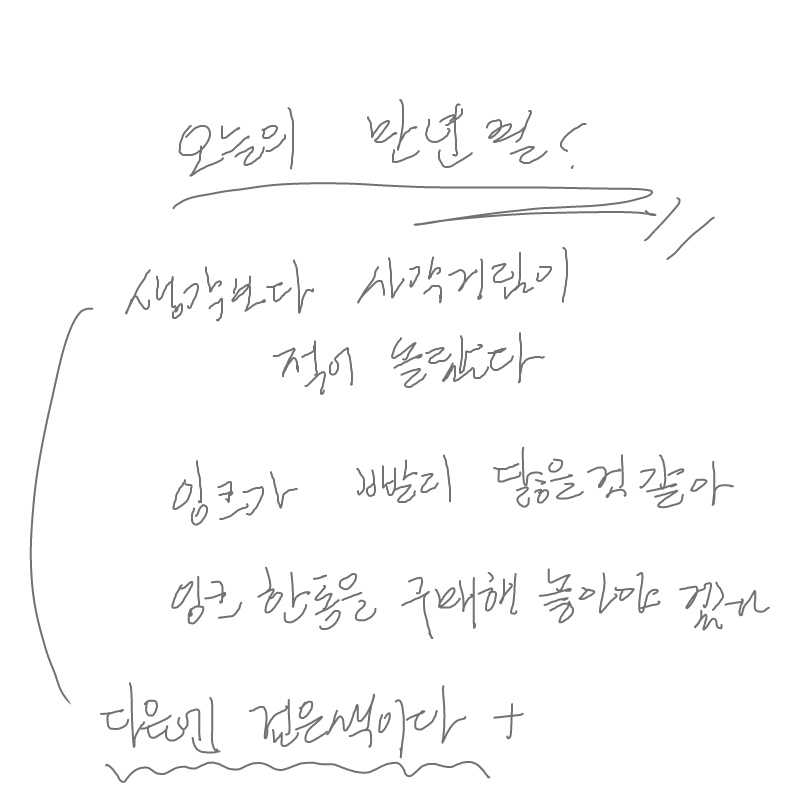 오늘의 만년필?
생각보다 사각거림이
적어 놀랍다
잉크가 빨리 닳을것 같아
잉크 한통을 구매해 놓아야 겠다
다음엔 검은색이다 +